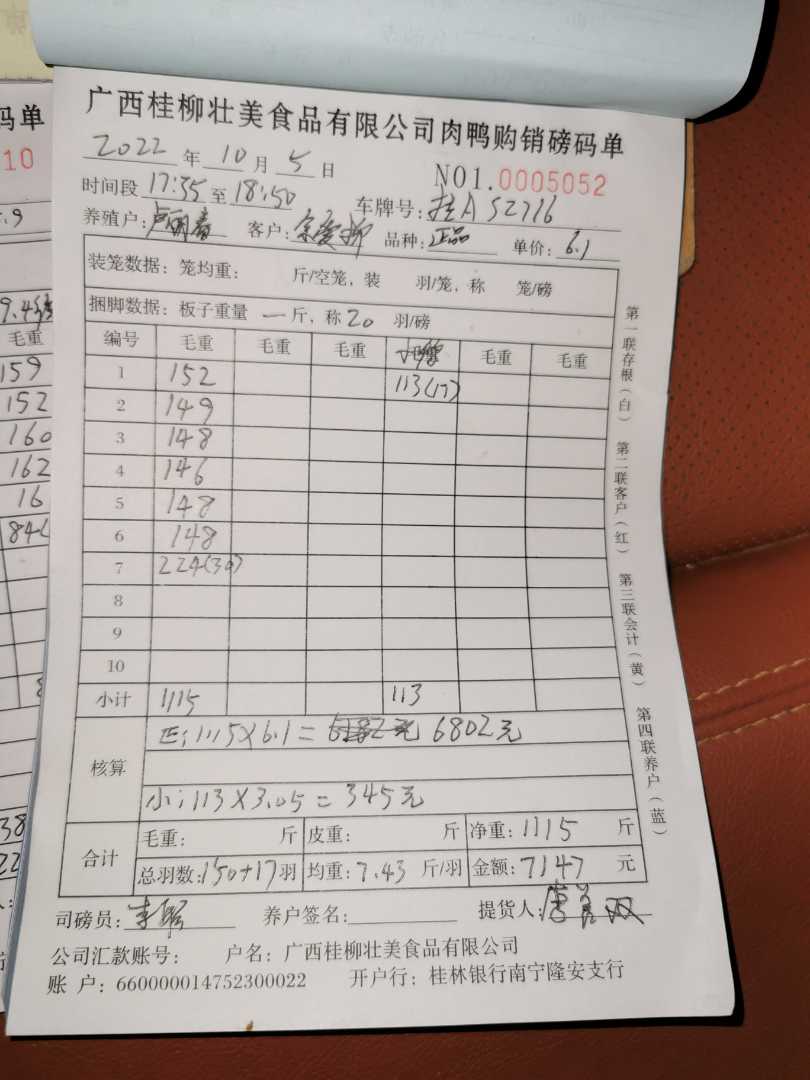 广西桂柳壮美食品有限公司肉鸭购销磅码单
2022 年 10 月 5 日
NO1.0005052
时间段 17:35 至 18:50 车牌号: 桂A S2716
养殖户: 客户: 品种: 正品 单价: 6.1
装笼数据: 笼均重: 斤/空笼, 装 羽/笼, 称 笼/磅
捆脚数据: 板子重量 一 斤, 称 20 羽/磅
编号 毛重 毛重 毛重 毛重 毛重
1 152 113(17)
2 149
3 148
4 146
5 148
6 148
7 224(30)
8
9
10
小计 1115 113
核算
正: 1115×6.1= 6802元
小: 113×3.05=345元
合计
毛重: 斤 皮重: 斤 净重: 1115 斤
总羽数: 150+17 羽 均重: 7.43 斤/羽 金额: 7147 元
司磅员: 养户签名: 提货人:
公司汇款账号: 户名: 广西桂柳壮美食品有限公司
账 户: 660000014752300022 开户行: 桂林银行南宁隆安支行
第一联存根(白)
第二联客户(红)
第三联会计(黄)
第四联养户(蓝)
码单
10
毛重
159
152
160
162
16